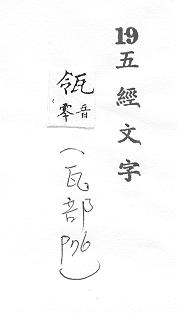 19五經文字
瓴音零
(瓦部P76)